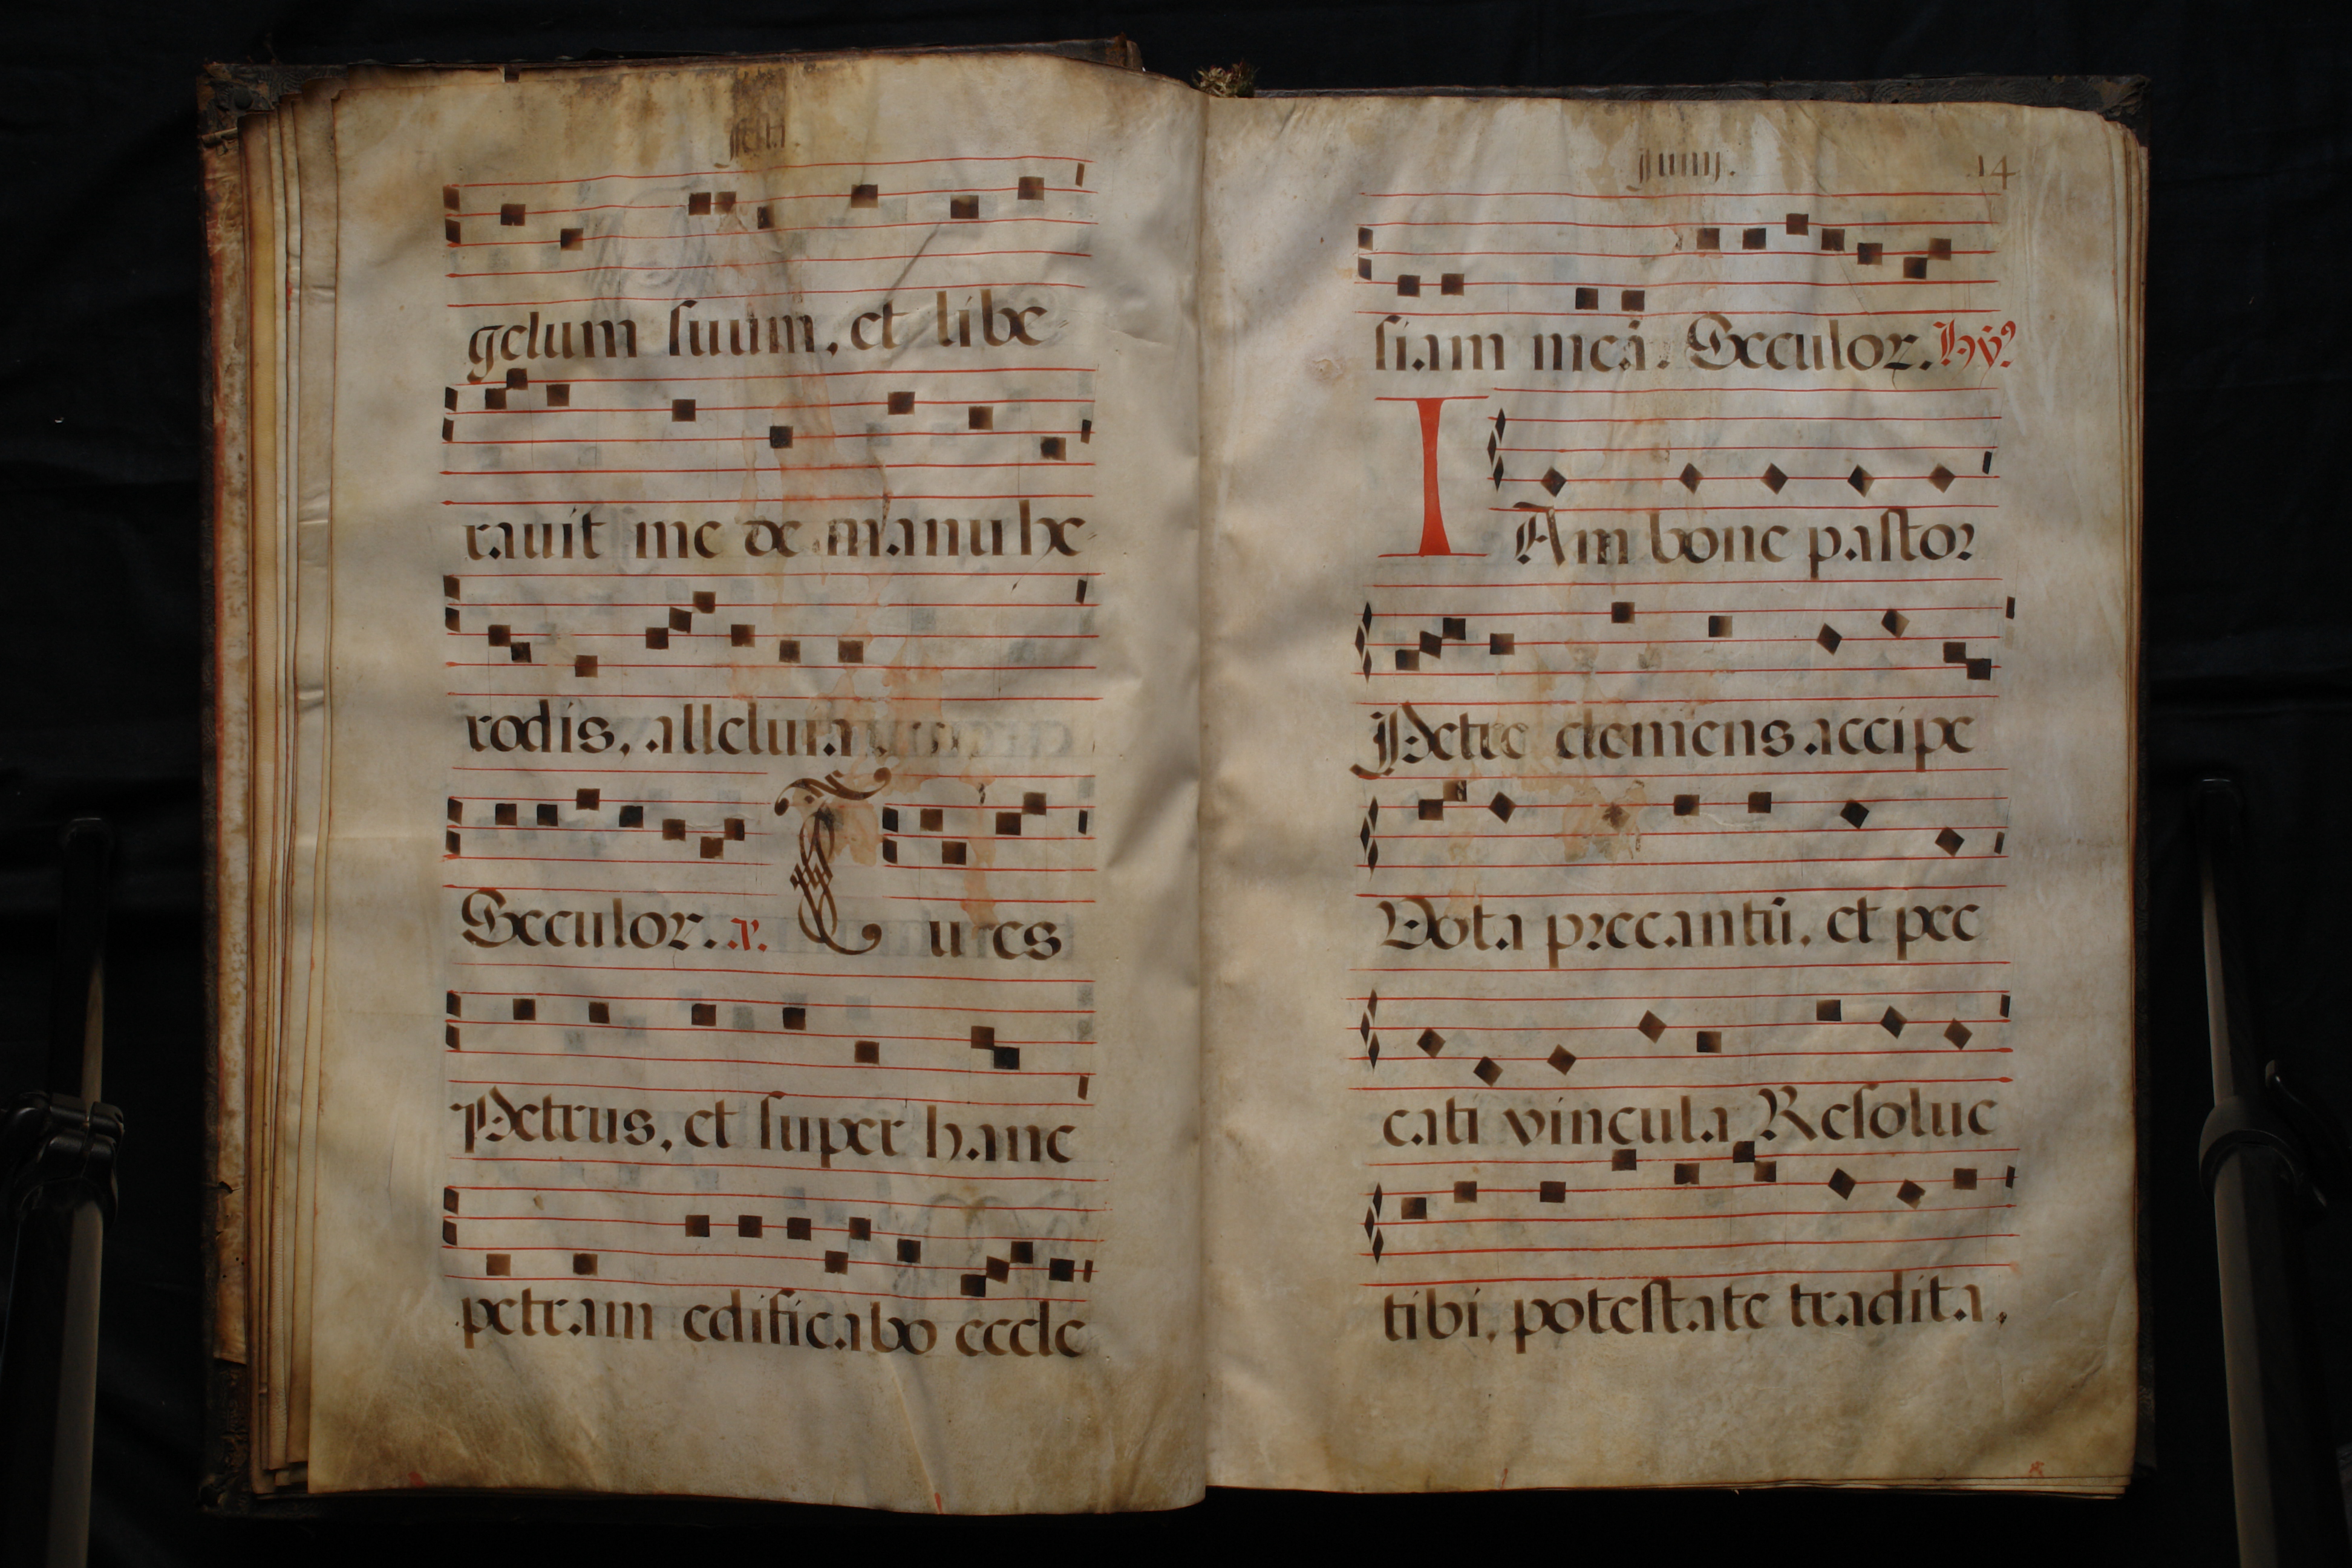 festa.
gelum suum, et libe-
rauit me de manu he-
rodis, alleluia.
Seculor. a. Tu es
Petrus, et super hanc
petram edificabo eccle
Junij. 14
siam meā. Seculor. hỹ?
IAm bone pastor
Petre clemens accipe
Vota precantū, et pec
cati vincula Resolue
tibi, potestate tradita,